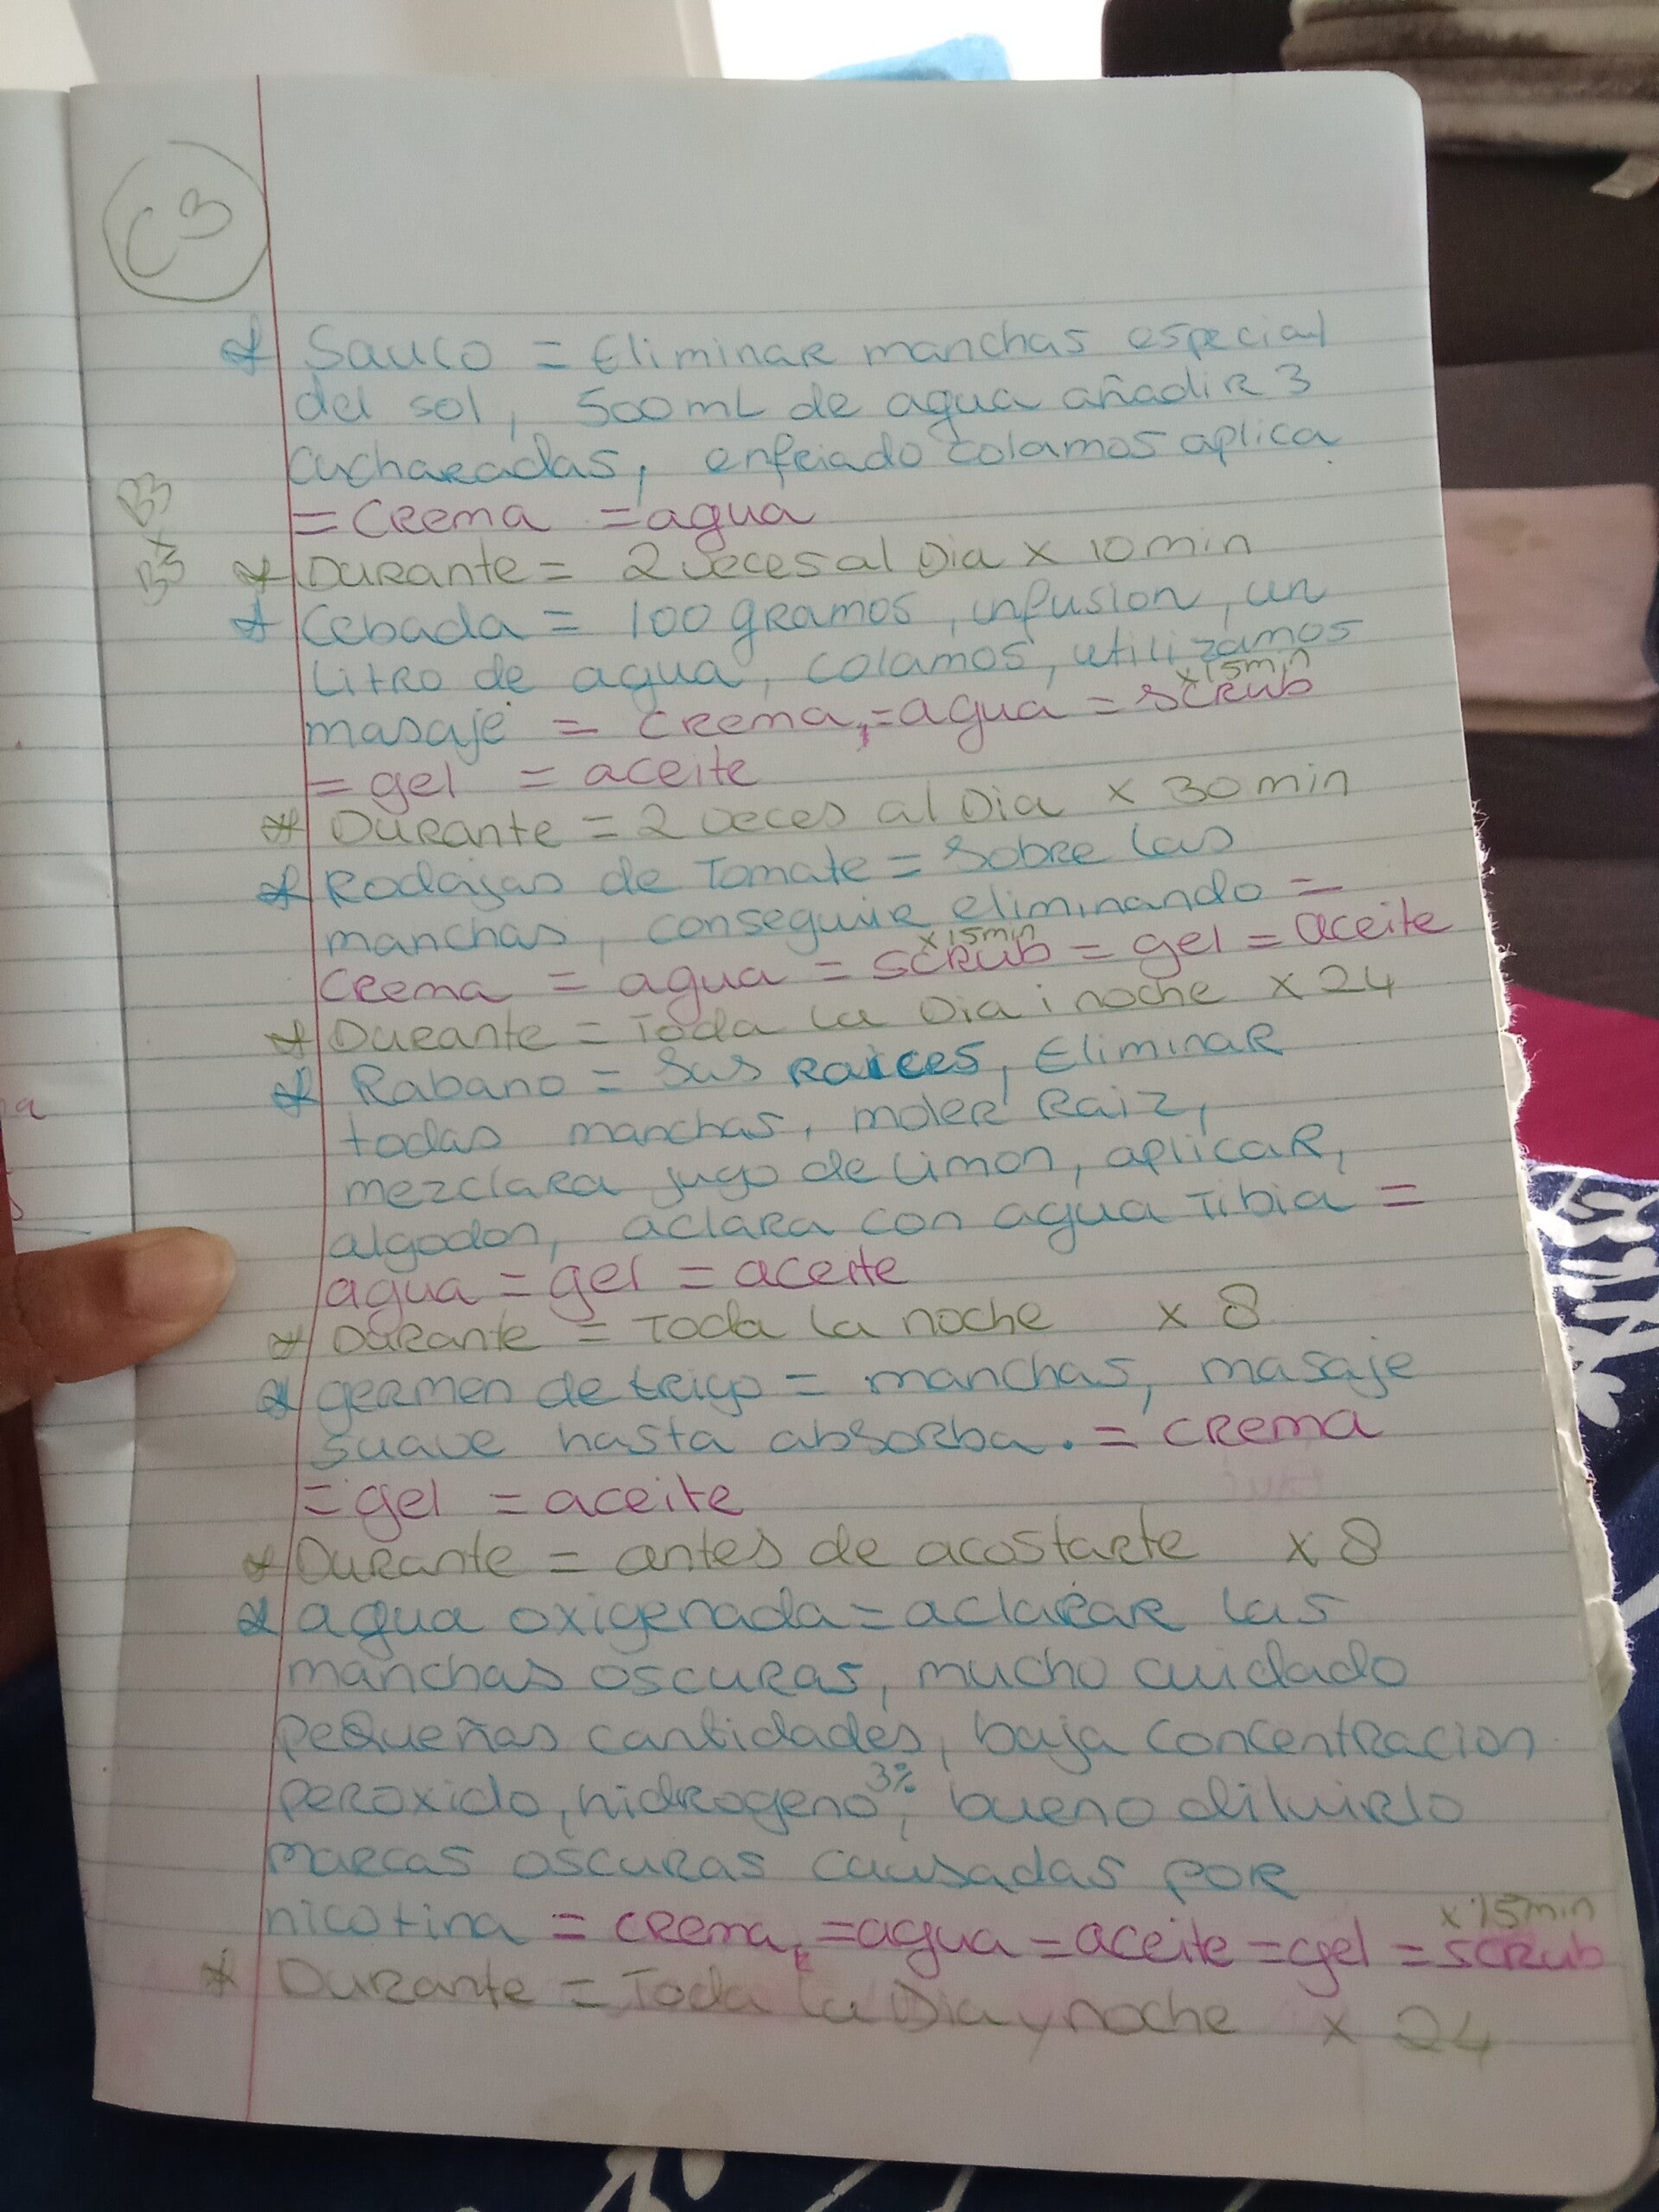 C3
* Sauco = Eliminar manchas especial
del sol, 500 mL de agua añadir 3
cucharadas, enfriado colamos aplica
B3
= Crema = agua
x
B3
* Durante = 2 veces al Dia x 10 min
* Cebada = 100 gramos, infusion, un
Litro de agua, colamos, utilizamos
x 15 min
masaje = crema, = agua = scrub
= gel = aceite
* Durante = 2 veces al Dia x 30 min
* Rodajas de Tomate = Sobre las
manchas, conseguir eliminando =
x 15 min
crema = agua = scrub = gel = aceite
* Durante = Toda la Dia i noche x 24
* Rabano = Sus Raices, Eliminar
todas manchas, moler Raiz,
mezclara jugo de limon, aplicar,
algodon, aclara con agua Tibia =
agua = gel = aceite
* Durante = Toda la noche x 8
* germen de trigo = manchas, masaje
suave hasta absorba. = crema
= gel = aceite
* Durante = antes de acostarte x 8
* agua oxigenada = aclarar las
manchas oscuras, mucho cuidado
pequeñas cantidades, baja concentracion
peroxido, hidrogeno 3%, bueno diluirlo
marcas oscuras causadas por
x 15 min
nicotina = crema, = agua = aceite = gel = scrub
* Durante = Toda la Dia y noche x 24
a